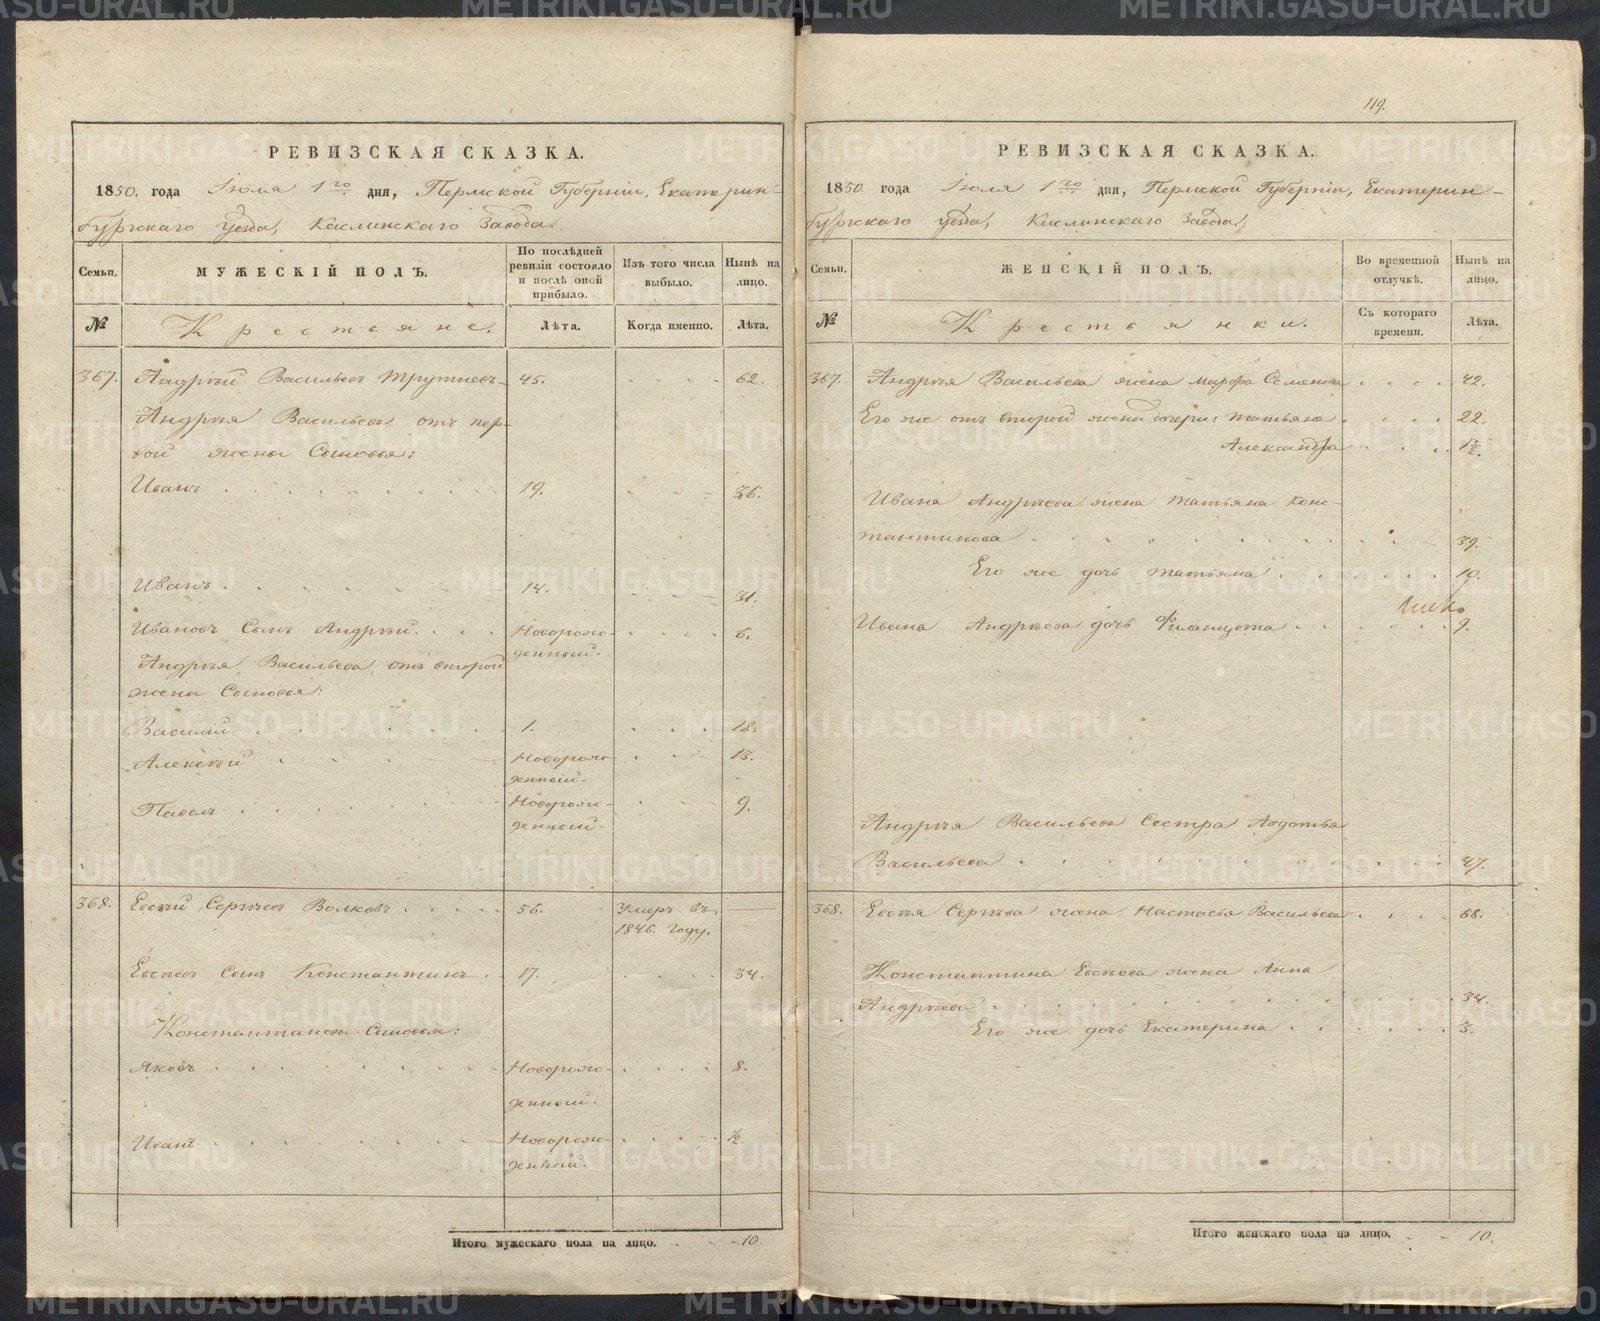 119.
РЕВИЗСКАЯ СКАЗКА.
1850. года Іюля 1го дня, Пермской Губерніи, Екатерин-
бургскаго уезда, Каслинскаго Завода.
Семьи.
МУЖЕСКІЙ ПОЛЪ.
По послѣдней
ревизіи состояло
и послѣ оной
прибыло.
Изъ того числа
выбыло.
Нынѣ на
лицо.
№
Крестьяне.
Лѣта.
Когда именно.
Лѣта.
367. Андрей Васильевъ 45. 62.
Андрѣя Васильева отъ пер-
вой жены Сыновья:
Иванъ 19. 36.
Иванъ 14. 31.
Ивановъ Сынъ Андрѣй Новорож- 6.
денный.
Андрѣя Васильева отъ второй
жены Сыновья:
Василій 1. 18.
Алексѣй Новорож- 13.
денный.
Павелъ Новорож- 9.
денный.
368. Евсѣй Сергѣевъ Волковъ 56. Умеръ въ
1846. Году.
Евсѣевъ Сынъ Константинъ 17. 34.
Константинова Сыновья:
Яковъ Новорож- 8.
денный.
Иванъ Новорож- ½
денный.
Итого мужескаго пола на лицо. 10.
РЕВИЗСКАЯ СКАЗКА.
1850 года Іюля 1го дня, Пермской Губерніи, Екатерин-
бургскаго уезда, Каслинскаго Завода.
Семьи.
ЖЕНСКІЙ ПОЛЪ.
Во временной
отлучкѣ.
Нынѣ на
лицо.
№
Крестьянки.
Съ котораго
времени.
Лѣта.
367. Андрѣя Васильева жена Марфа Семенова 42.
Его же отъ второй жены дочери: Татьяна 22.
Александра 1½.
Ивана Андрѣева жена Татьяна Конс-
тантинова 39.
Его же дочь Татьяна 10.
Ивана Андрѣева дочь 9.
Андрѣя Васильева Сестра Авдотья
Васильева 47.
368. Евсѣя Сергѣева жена Настасья Васильева 68.
Константина Евсѣева жена Анна
Андрѣева 34.
Его же дочь Екатерина 3.
Итого женскаго пола на лицо. 10.
METRIKI.GASO-URAL.RU